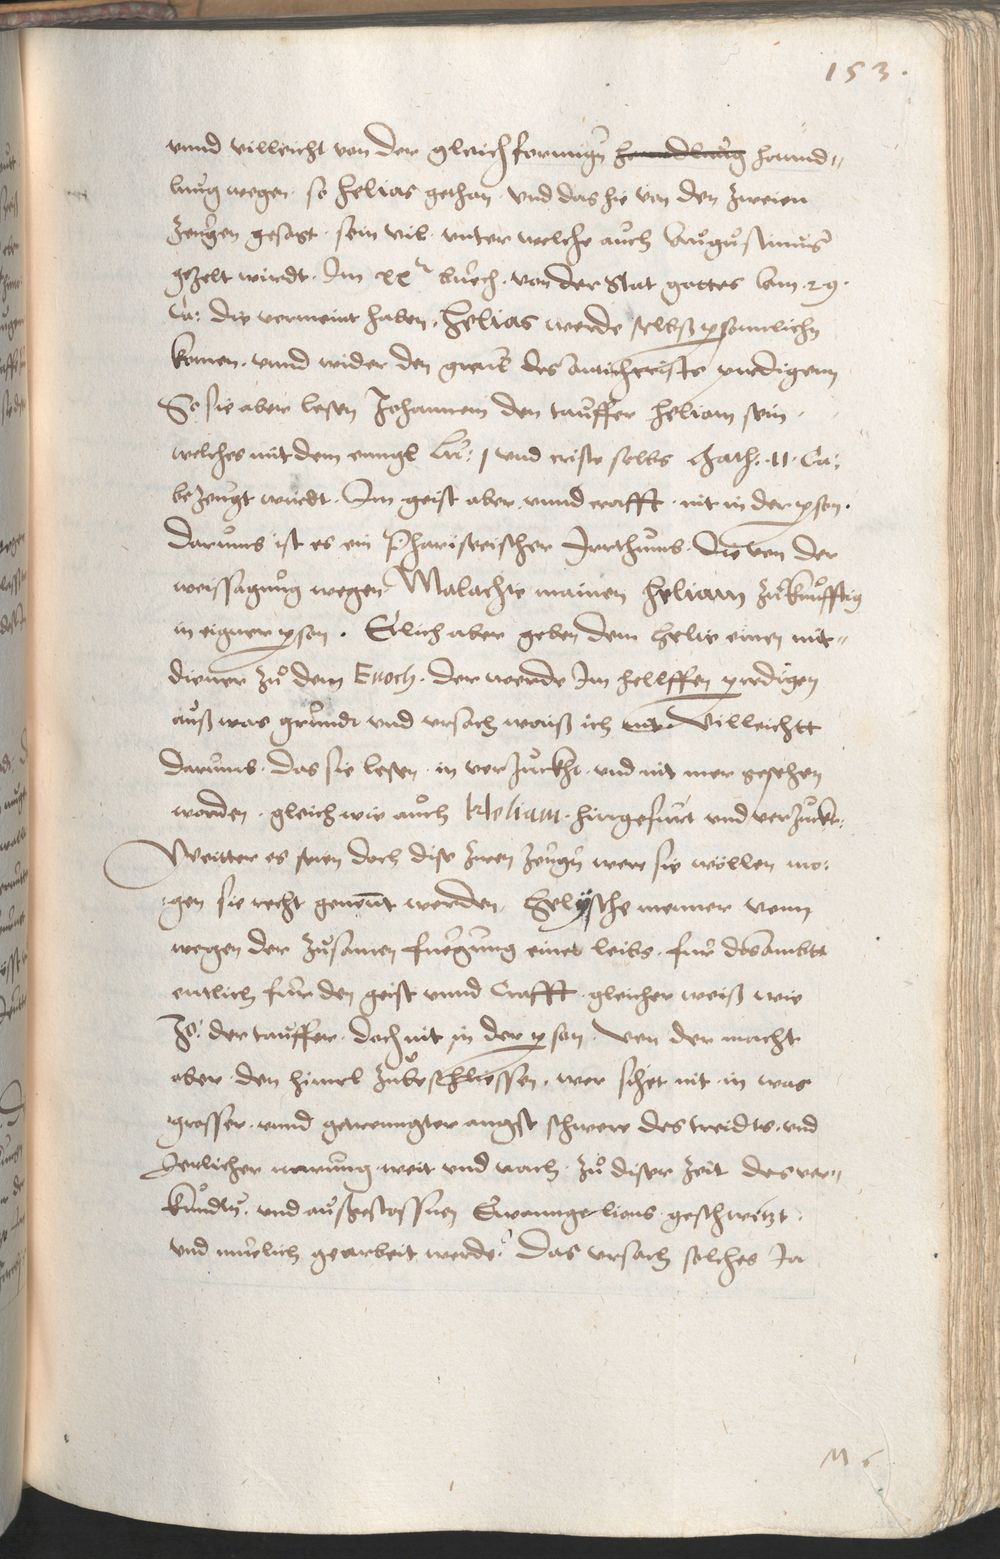 153.
vnnd villeicht von der gleichformign̄ handlung hannd„
lung wegen. so helias gethan. vnd das hie von den zweien
zeugen gesagt. sein vil. vnter welche auch Augustinus
gezelt wurdt. Im xx buech. von der Stat gottes Am. 29.
Ca: die vermeint haben. helias werde selbß psonnlichn
komen. vnnd wider den greul des Antichrists predigenn
So sie aber lesen Johannem den tauffer heliam sein.
welches mit dem enngl Lu: 1 vnd cristo selbs Math. 11. Ca:
bezeugt wurdt. Im geist aber vnnd crafft. nit in der pson.
darumb ist es ein Phariseischer Irrthumb. die von der
weissagung wegen Malachie mainen heliam zukunfftig
in eigner pson. Etlich aber geben dem helie einen mit„
diener zu dem Enoch. der werde Im hellffen predigen
auß was grundt vnd vrsach waiß ich nit. Villeichtt
darumb. das sie lesen. in verzuckht. vnd nit mer gesehen
worden. gleich wie auch Heliam. hingefurt vnd verzuckt.
Weitter es seien doch dise zwen zeugn̄ wer sie wöllen mo:
gen sie recht genent werden. Helysche menner vonn
wegen der zusamen fuegung eines leibs. fur das Ambtt
entlich fur den geist vnnd Crafft. gleicher weiß wie
Jo: der tauffer. doch nit in der pson. Von der macht
aber den himel zubeschliessen. wer sihet nit in was
grosser. vnnd getrenngter angst schwere des treidts. vnd
Zerlicher narung weit vnd nach. zu diser zeit des ver„
kundtn̄. vnd außgestossnen Ewanngelions geschwitzt.
vnd muelich gearbeit werde? Das vrsach solches Ja
M 6